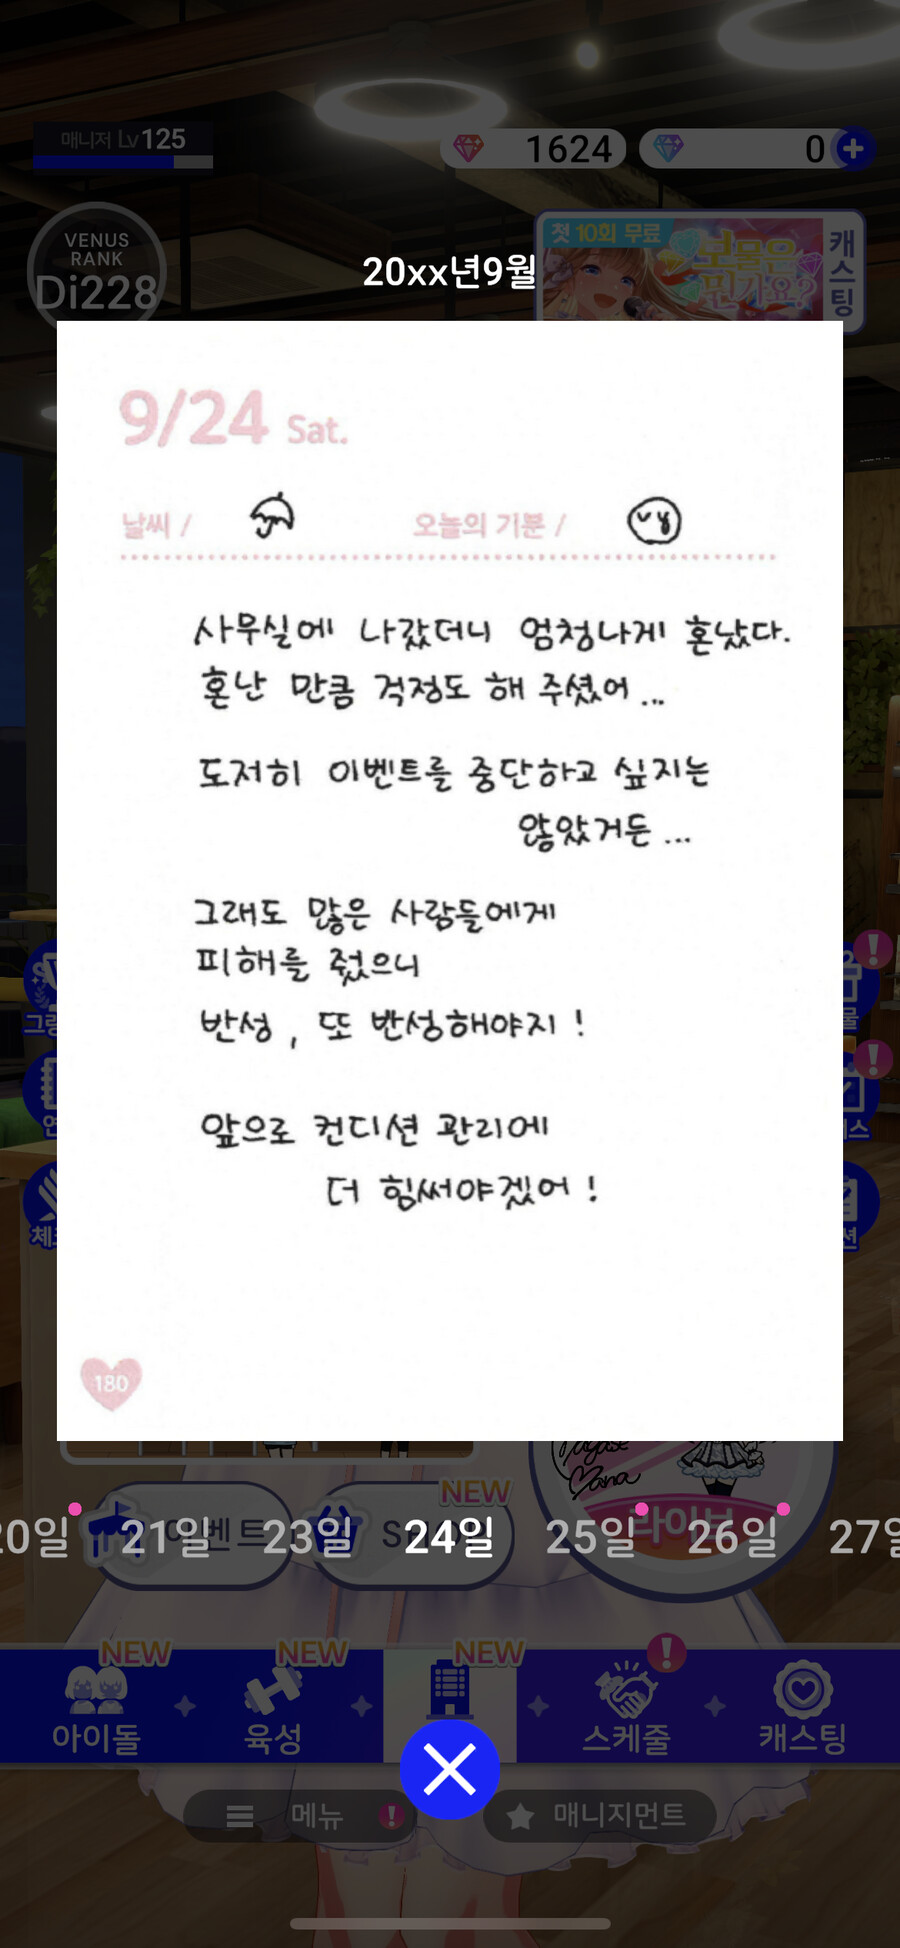 매니저 Lv125
1624
0
VENUS
RANK
Di228
첫 10회 무료
보물은
뭔가요?
캐스팅
20xx년9월
9/24 Sat.
날씨 /
오늘의 기분 /
사무실에 나갔더니 엄청나게 혼났다.
혼난 만큼 걱정도 해 주셨어...
도저히 이벤트를 중단하고 싶지는
않았거든...
그래도 많은 사람들에게
피해를 줬으니
반성, 또 반성해야지!
앞으로 컨디션 관리에
더 힘써야겠어!
180
Mana
NEW
이벤트
라이브
20일 21일 23일 24일 25일 26일 27일
NEW
NEW
NEW
아이돌
육성
스케줄
캐스팅
메뉴
매니지먼트